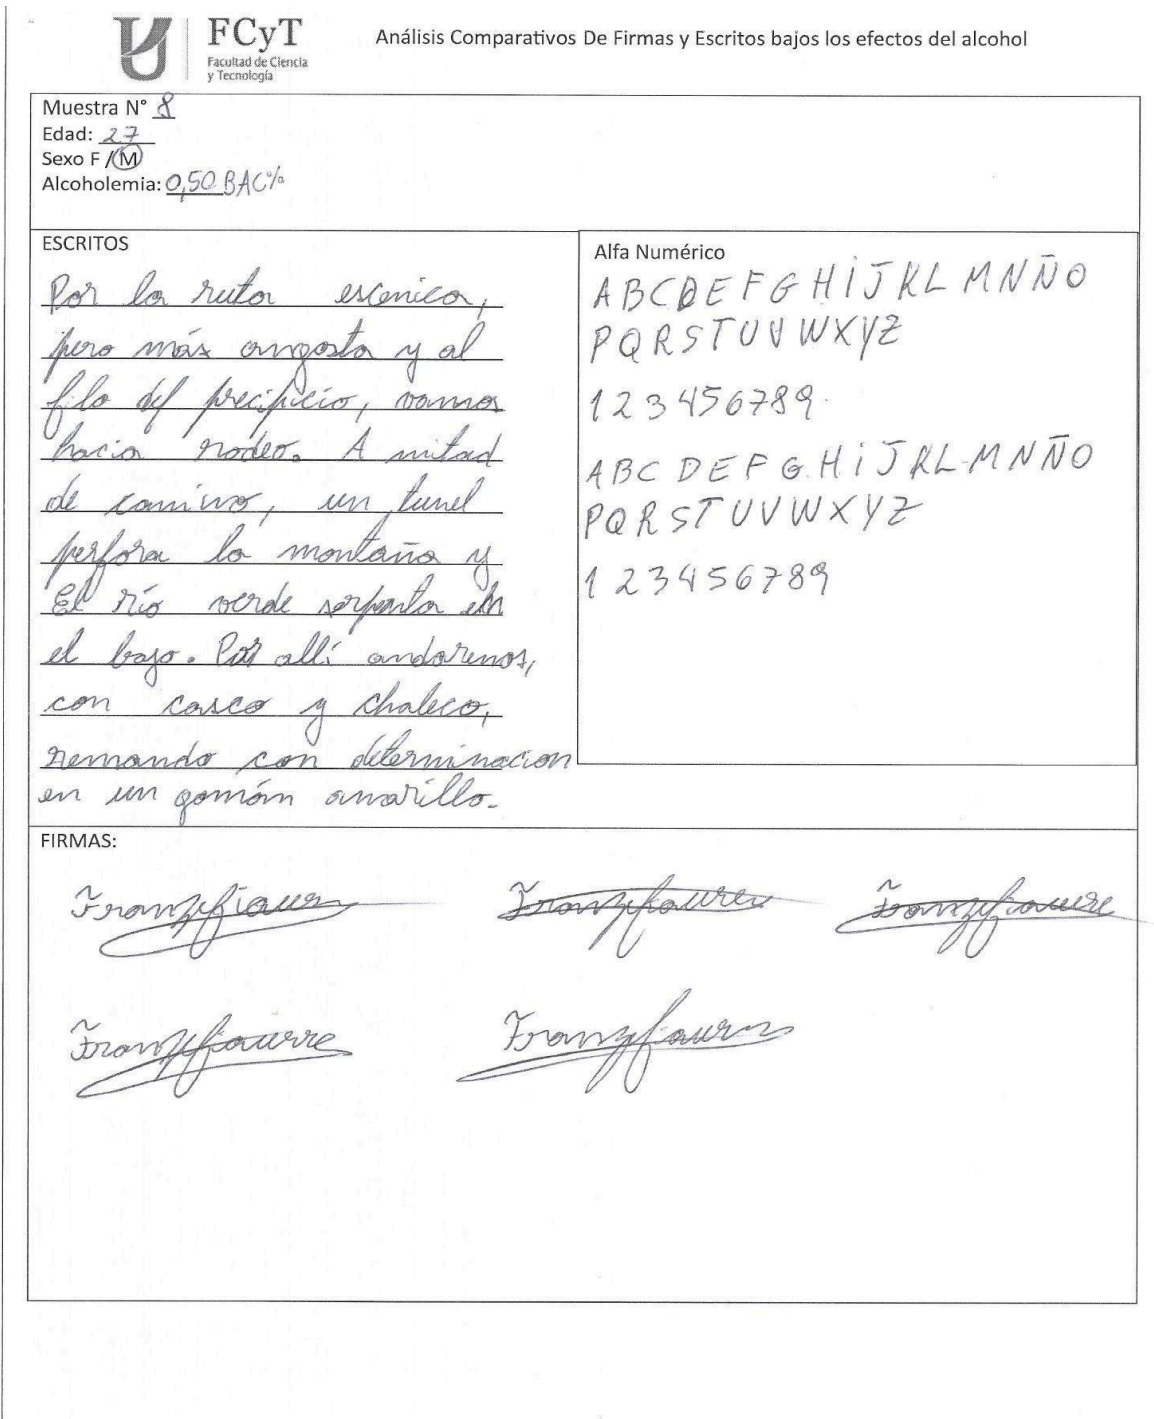 FCyT
Facultad de Ciencia
y Tecnología
Análisis Comparativos De Firmas y Escritos bajos los efectos del alcohol
Muestra N° 8
Edad: 27
Sexo F / M
Alcoholemia: 0,50 BAC%
ESCRITOS
Por la ruta escenica,
pero más angosta y al
filo del precipicio, vamos
hacia rodeo. A mitad
de camino, un tunel
perfora la montaña y
El río verde serpenta en
el bajo. Por allí andaremos,
con casco y chaleco,
remando con determinacion
en un gomón amarillo.
Alfa Numérico
A B C D E F G H i J K L M N Ñ O
P Q R S T U V W X Y Z
1 2 3 4 5 6 7 8 9
A B C D E F G H i J K L M N Ñ O
P Q R S T U V W X Y Z
1 2 3 4 5 6 7 8 9
FIRMAS: